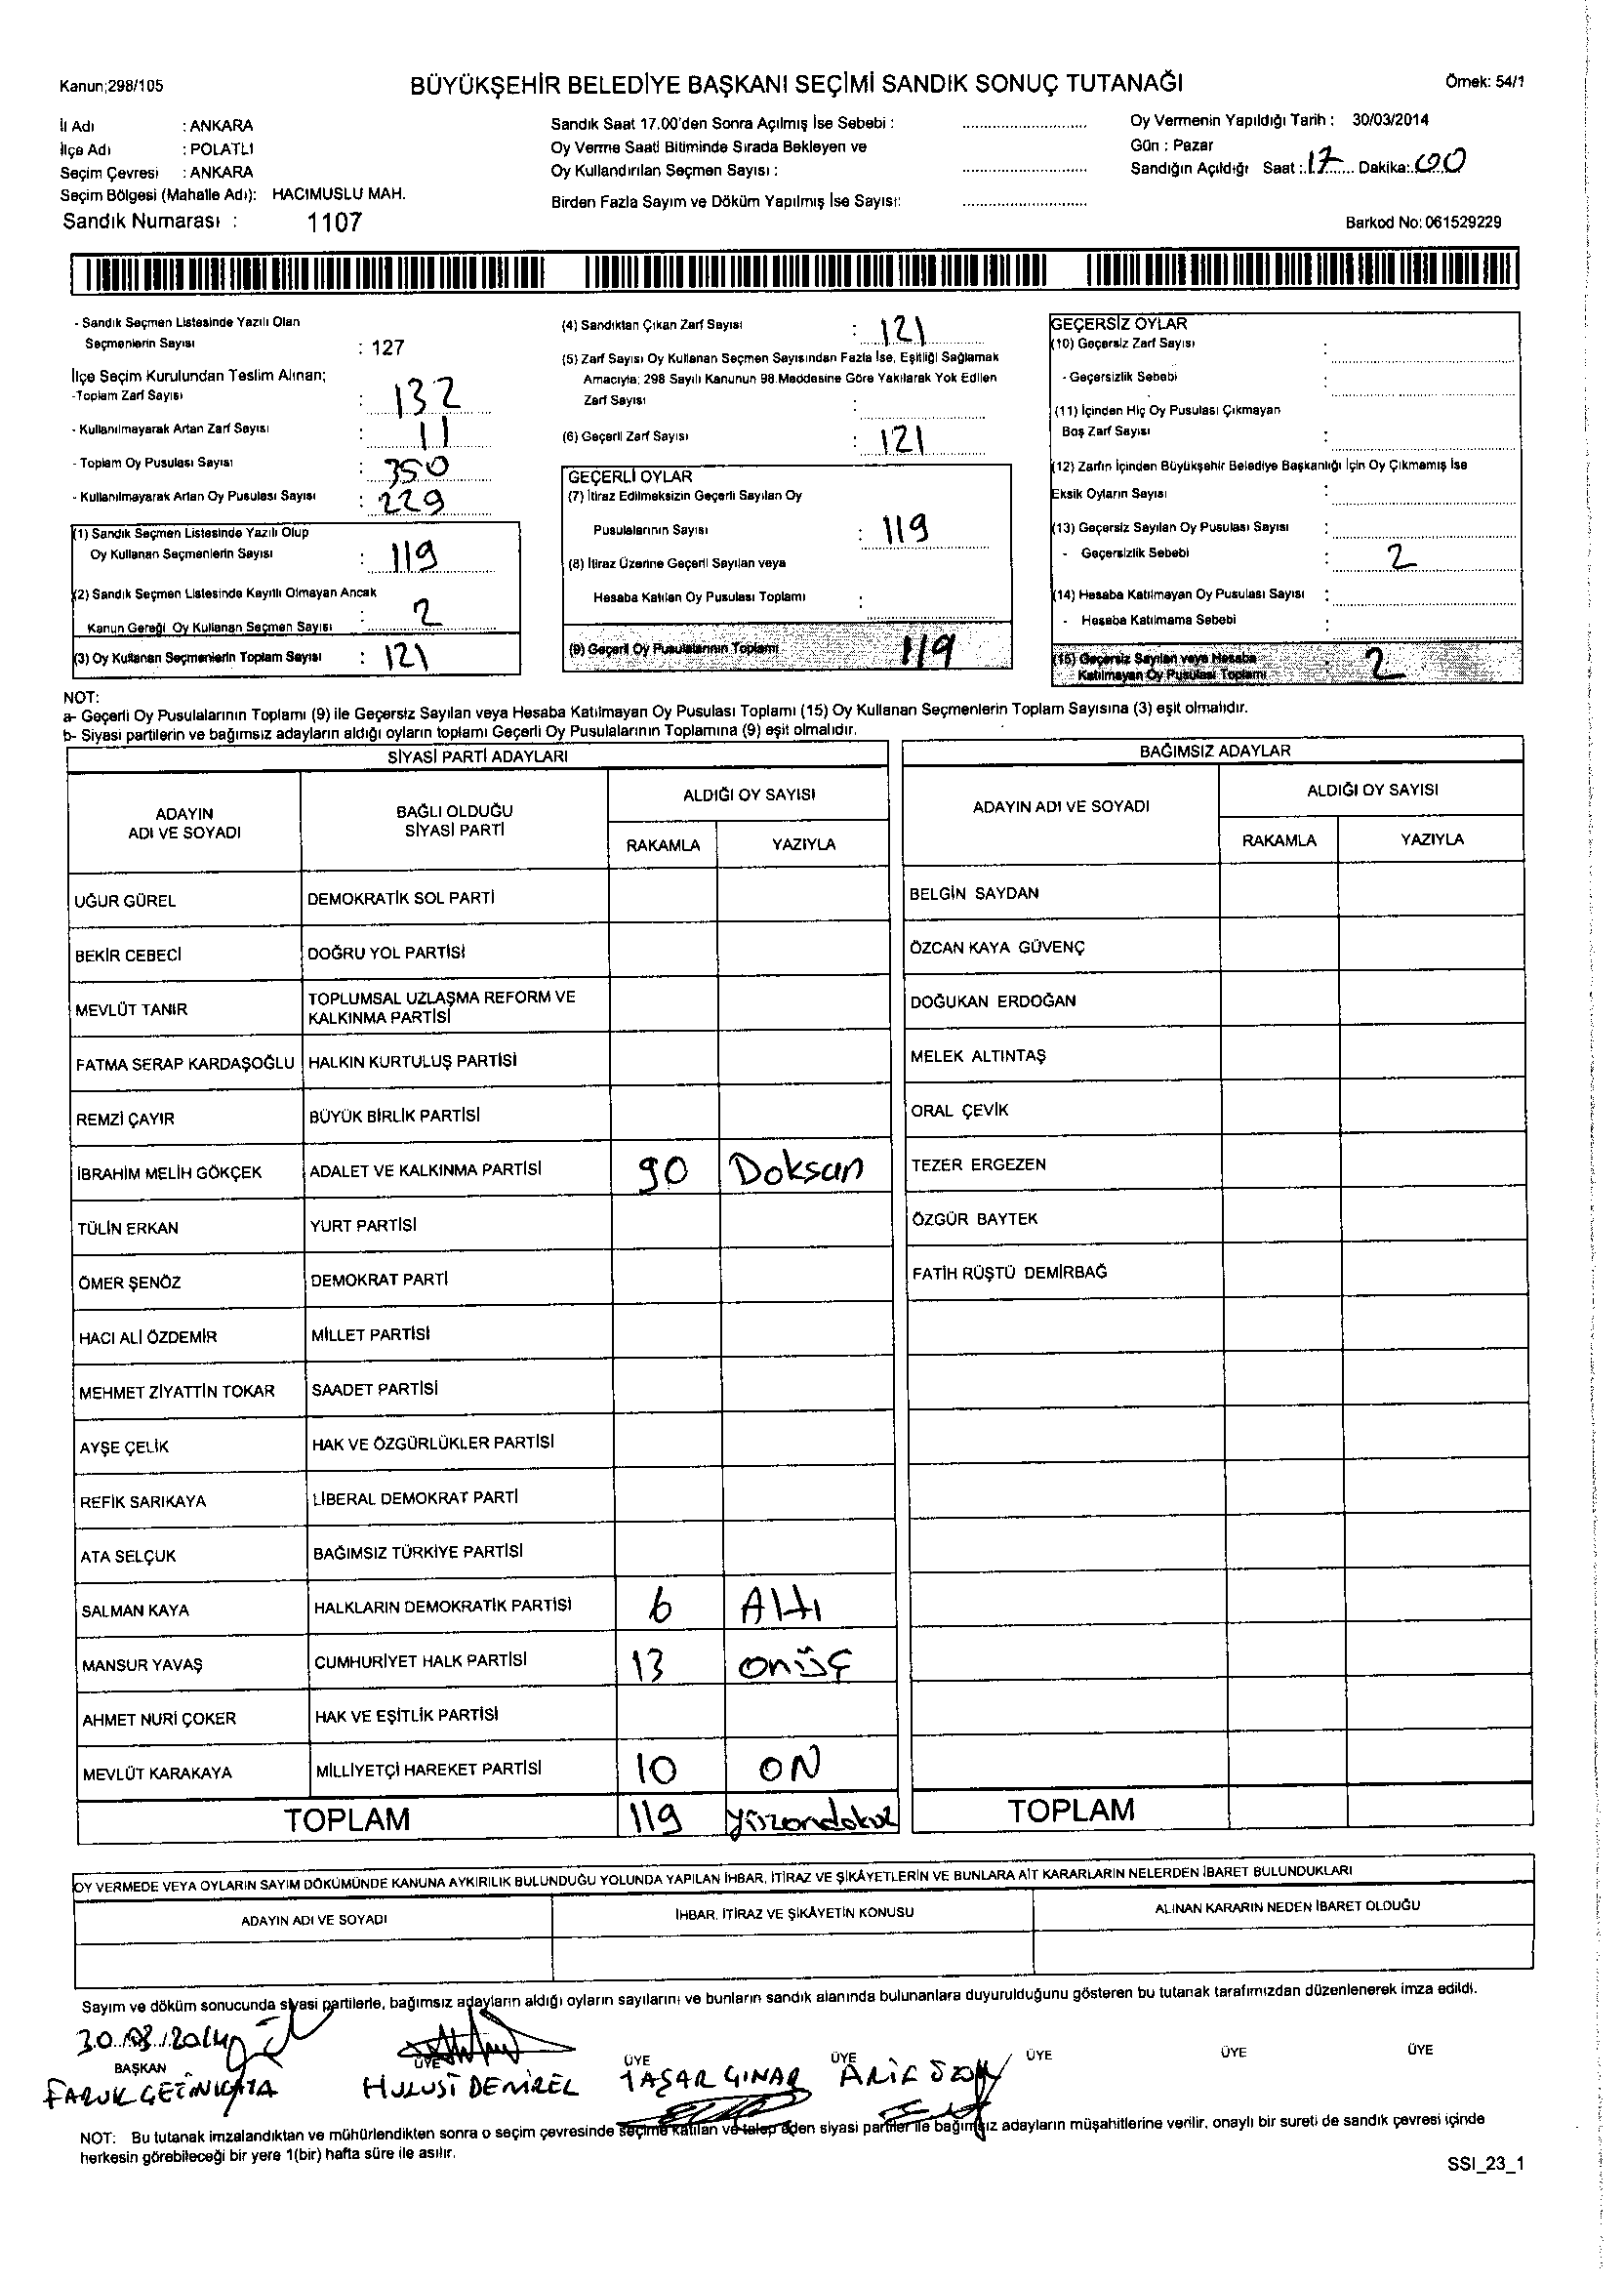 Kanun;298/105
BÜYÜKŞEHİR BELEDİYE BAŞKANI SEÇİMİ SANDIK SONUÇ TUTANAĞI
Örnek: 54/1
İl Adı : ANKARA
İlçe Adı : POLATLI
Seçim Çevresi : ANKARA
Seçim Bölgesi (Mahalle Adı): HACIMUSLU MAH.
Sandık Numarası : 1107
Sandık Saat 17.00'den Sonra Açılmış İse Sebebi :
Oy Verme Saati Bitiminde Sırada Bekleyen ve
Oy Kullandırılan Seçmen Sayısı :
Birden Fazla Sayım ve Döküm Yapılmış İse Sayısı:
Oy Vermenin Yapıldığı Tarih : 30/03/2014
Gün : Pazar
Sandığın Açıldığı Saat : 17 Dakika: 00
Barkod No: 061529229
- Sandık Seçmen Listesinde Yazılı Olan
Seçmenlerin Sayısı : 127
İlçe Seçim Kurulundan Teslim Alınan;
-Toplam Zarf Sayısı : 132
- Kullanılmayarak Artan Zarf Sayısı : 11
- Toplam Oy Pusulası Sayısı : 350
- Kullanılmayarak Artan Oy Pusulası Sayısı : 229
(1) Sandık Seçmen Listesinde Yazılı Olup
Oy Kullanan Seçmenlerin Sayısı : 119
(2) Sandık Seçmen Listesinde Kayıtlı Olmayan Ancak
Kanun Gereği Oy Kullanan Seçmen Sayısı : 2
(3) Oy Kullanan Seçmenlerin Toplam Sayısı : 121
(4) Sandıktan Çıkan Zarf Sayısı : 121
(5) Zarf Sayısı Oy Kullanan Seçmen Sayısından Fazla İse, Eşitliği Sağlamak
Amacıyla; 298 Sayılı Kanunun 98.Maddesine Göre Yakılarak Yok Edilen
Zarf Sayısı :
(6) Geçerli Zarf Sayısı : 121
GEÇERLİ OYLAR
(7) İtiraz Edilmeksizin Geçerli Sayılan Oy
Pusulalarının Sayısı : 119
(8) İtiraz Üzerine Geçerli Sayılan veya
Hesaba Katılan Oy Pusulası Toplamı :
(9) Geçerli Oy Pusulalarının Toplamı 119
GEÇERSİZ OYLAR
(10) Geçersiz Zarf Sayısı :
- Geçersizlik Sebebi :
(11) İçinden Hiç Oy Pusulası Çıkmayan
Boş Zarf Sayısı :
(12) Zarfın İçinden Büyükşehir Belediye Başkanlığı İçin Oy Çıkmamış İse
Eksik Oyların Sayısı :
(13) Geçersiz Sayılan Oy Pusulası Sayısı :
- Geçersizlik Sebebi : 2
(14) Hesaba Katılmayan Oy Pusulası Sayısı :
- Hesaba Katılmama Sebebi :
(15) Geçersiz Sayılan veya Hesaba
Katılmayan Oy Pusulası Toplamı : 2
NOT:
a- Geçerli Oy Pusulalarının Toplamı (9) ile Geçersiz Sayılan veya Hesaba Katılmayan Oy Pusulası Toplamı (15) Oy Kullanan Seçmenlerin Toplam Sayısına (3) eşit olmalıdır.
b- Siyasi partilerin ve bağımsız adayların aldığı oyların toplamı Geçerli Oy Pusulalarının Toplamına (9) eşit olmalıdır.
SİYASİ PARTİ ADAYLARI
ADAYIN
ADI VE SOYADI
BAĞLI OLDUĞU
SİYASİ PARTİ
ALDIĞI OY SAYISI
RAKAMLA YAZIYLA
UĞUR GÜREL DEMOKRATİK SOL PARTİ
BEKİR CEBECİ DOĞRU YOL PARTİSİ
MEVLÜT TANIR TOPLUMSAL UZLAŞMA REFORM VE
KALKINMA PARTİSİ
FATMA SERAP KARDAŞOĞLU HALKIN KURTULUŞ PARTİSİ
REMZİ ÇAYIR BÜYÜK BİRLİK PARTİSİ
İBRAHİM MELİH GÖKÇEK ADALET VE KALKINMA PARTİSİ 90 Doksan
TÜLİN ERKAN YURT PARTİSİ
ÖMER ŞENÖZ DEMOKRAT PARTİ
HACI ALİ ÖZDEMİR MİLLET PARTİSİ
MEHMET ZİYATTİN TOKAR SAADET PARTİSİ
AYŞE ÇELİK HAK VE ÖZGÜRLÜKLER PARTİSİ
REFİK SARIKAYA LİBERAL DEMOKRAT PARTİ
ATA SELÇUK BAĞIMSIZ TÜRKİYE PARTİSİ
SALMAN KAYA HALKLARIN DEMOKRATİK PARTİSİ 6 Altı
MANSUR YAVAŞ CUMHURİYET HALK PARTİSİ 13 onüç
AHMET NURİ ÇOKER HAK VE EŞİTLİK PARTİSİ
MEVLÜT KARAKAYA MİLLİYETÇİ HAREKET PARTİSİ 10 ON
TOPLAM 119 yüzondokuz
BAĞIMSIZ ADAYLAR
ADAYIN ADI VE SOYADI
ALDIĞI OY SAYISI
RAKAMLA YAZIYLA
BELGİN SAYDAN
ÖZCAN KAYA GÜVENÇ
DOĞUKAN ERDOĞAN
MELEK ALTINTAŞ
ORAL ÇEVİK
TEZER ERGEZEN
ÖZGÜR BAYTEK
FATİH RÜŞTÜ DEMİRBAĞ
TOPLAM
OY VERMEDE VEYA OYLARIN SAYIM DÖKÜMÜNDE KANUNA AYKIRILIK BULUNDUĞU YOLUNDA YAPILAN İHBAR, İTİRAZ VE ŞİKÂYETLERİN VE BUNLARA AİT KARARLARIN NELERDEN İBARET BULUNDUKLARI
ADAYIN ADI VE SOYADI İHBAR, İTİRAZ VE ŞİKÂYETİN KONUSU ALINAN KARARIN NEDEN İBARET OLDUĞU
Sayım ve döküm sonucunda siyasi partilerle, bağımsız adayların aldığı oyların sayılarını ve bunların sandık alanında bulunanlara duyurulduğunu gösteren bu tutanak tarafımızdan düzenlenerek imza edildi.
30.03.2014
BAŞKAN ÜYE ÜYE ÜYE ÜYE ÜYE ÜYE
FARUK HULUSİ DEMİREL YAŞAR ÇINAR ARİF
NOT: Bu tutanak imzalandıktan ve mühürlendikten sonra o seçim çevresinde seçime katılan ve talep eden siyasi partiler ile bağımsız adayların müşahitlerine verilir, onaylı bir sureti de sandık çevresi içinde
herkesin görebileceği bir yere 1(bir) hafta süre ile asılır.
SSI_23_1